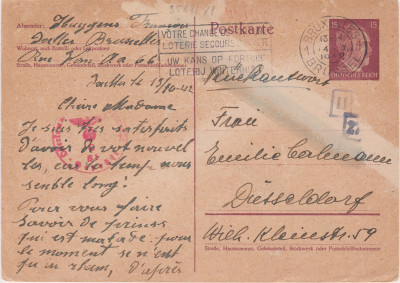 Postkarte
Absender: Huygens
Ixelles Bruxelles
Wohnort, auch Zustell- oder Leitpostamt
Rue Van Aa 66
Straße, Hausnummer, Gebäudeteil, Stockwerk oder Postschließfachnummer
VOTRE CHANCE
LOTERIE SECOURS
UW KANS OP FORTUIN
LOTERIJ WINTER
BRUXELLES
BRUSSEL
15
15
DEUTSCHES REICH
Ixelles le 13/10-42
Chère Madame
Je suis très satisfaits
d'avoir de vos nouvel
les, car le temps nous
semble long.
Pour vous faire
savoir de
qui est malade pour
le moment se n'est
qu'un rhum, d'après
Rückantwort
Frau
Emilie
Düsseldorf
Wilh. Kleinstr. 59
Straße, Hausnummer, Gebäudeteil, Stockwerk oder Postschließfachnummer